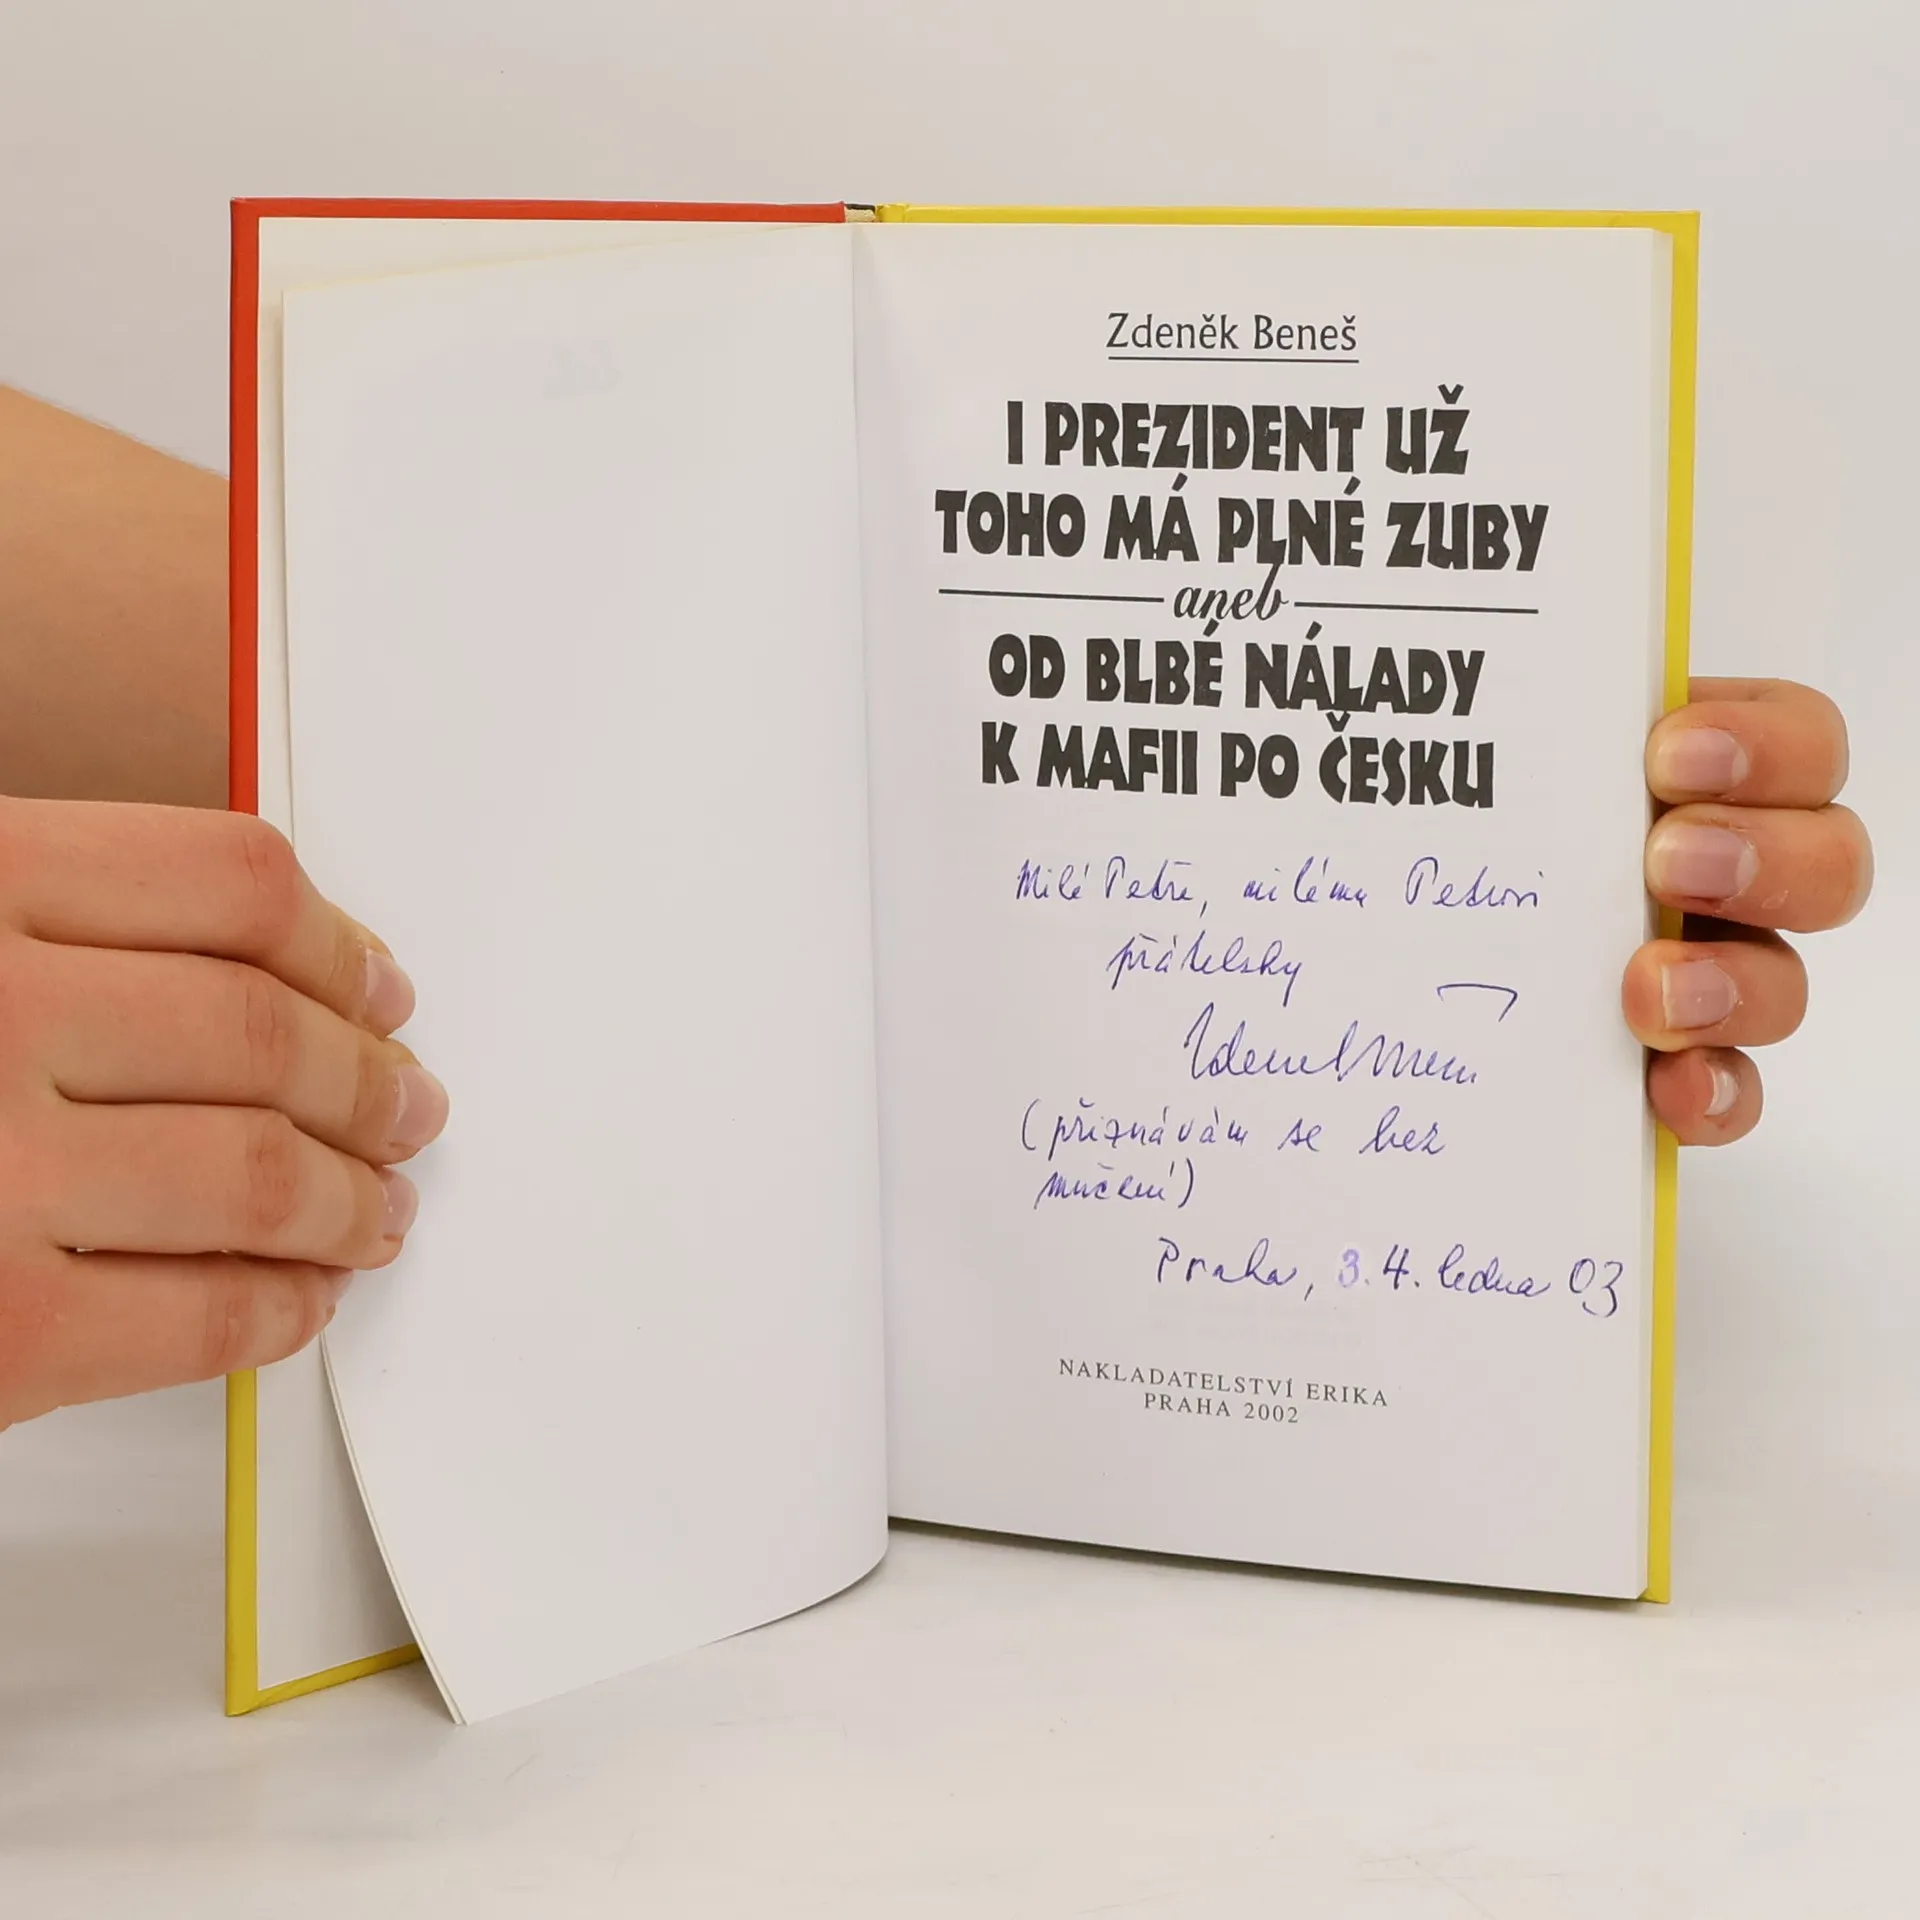 Zdeněk Beneš
I PREZIDENT UŽ
TOHO MÁ PLNÉ ZUBY
aneb
OD BLBÉ NÁLADY
K MAFII PO ČESKU
Milé Petře, milému Petrovi
přátelsky
(přiznávám se bez
mučení)
Praha, 3.4. ledna 03
NAKLADATELSTVÍ ERIKA
PRAHA 2002